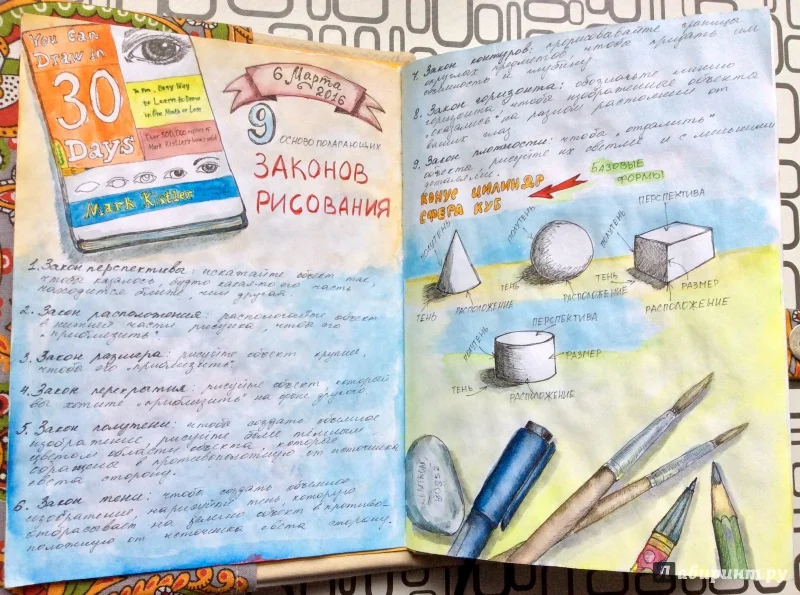 You Can
Draw in
30
Days
The Fun, Easy Way
to Learn to Draw
in One Month or Less
Over 500,000 copies of
Mark Kistler's books sold
Mark Kistler
6 Марта
2016
9
ОСНОВОПОЛАГАЮЩИХ
ЗАКОНОВ
РИСОВАНИЯ
1. Закон перспективы: искажайте объект так,
чтобы казалось, будто какая-то его часть
находится ближе, чем другая.
2. Закон расположения: располагайте объект
в нижней части рисунка, чтоб его
"приблизить".
3. Закон размера: рисуйте объект крупнее,
чтобы его "приблизить".
4. Закон перекрытия: рисуйте объект, который
вы хотите "приблизить" на фоне другого.
5. Закон полутени: чтобы создать объемное
изображение, рисуйте более тёмным
цветом области объекта, которые
обращены в противоположную от источника
света сторону.
6. Закон тени: чтобы создать объемное
изображение, нарисуйте тень, которую
отбрасывает на землю объект в противо-
положную от источника света сторону.
7. Закон контуров: прорисовывайте границы
округлых предметов, чтобы придать им
объёмность и глубину
8. Закон горизонта: обозначьте линию
горизонта, чтобы изображенные объекта
"казались" на разном расстоянии от
ваших глаз
9. Закон плотности: чтобы "отдалить"
объекта, рисуйте их светлее и с меньшими
деталями.
БАЗОВЫЕ
ФОРМЫ
КОНУС ЦИЛИНДР
СФЕРА КУБ
ПОЛУТЕНЬ
ТЕНЬ
РАСПОЛОЖЕНИЕ
ПОЛУТЕНЬ
ТЕНЬ
РАСПОЛОЖЕНИЕ
ПЕРСПЕКТИВА
ПОЛУТЕНЬ
ТЕНЬ
РАЗМЕР
РАСПОЛОЖЕНИЕ
ПОЛУТЕНЬ
ПЕРСПЕКТИВА
РАЗМЕР
ТЕНЬ
РАСПОЛОЖЕНИЕ
Лабиринт.ру